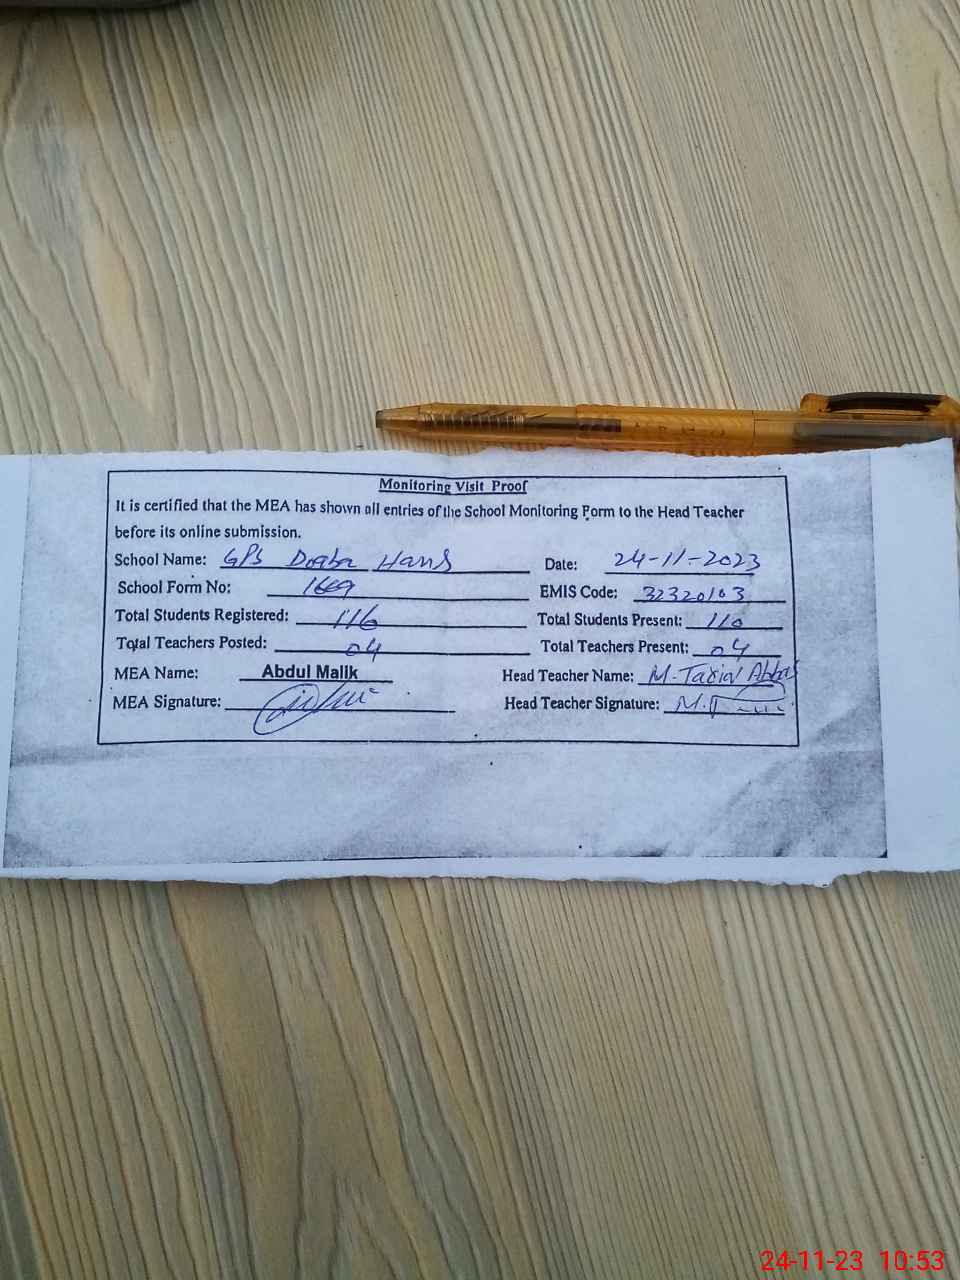 Monitoring Visit Proof
It is certified that the MEA has shown all entries of the School Monitoring Form to the Head Teacher
before its online submission.
School Name: GPS Doaba Hans Date: 24-11-2023
School Form No: 1669 EMIS Code: 32320103
Total Students Registered: 116 Total Students Present: 110
Total Teachers Posted: 04 Total Teachers Present: 04
MEA Name: Abdul Malik Head Teacher Name: M. Tariq Abbas
MEA Signature: Head Teacher Signature: M.
24-11-23 10:53